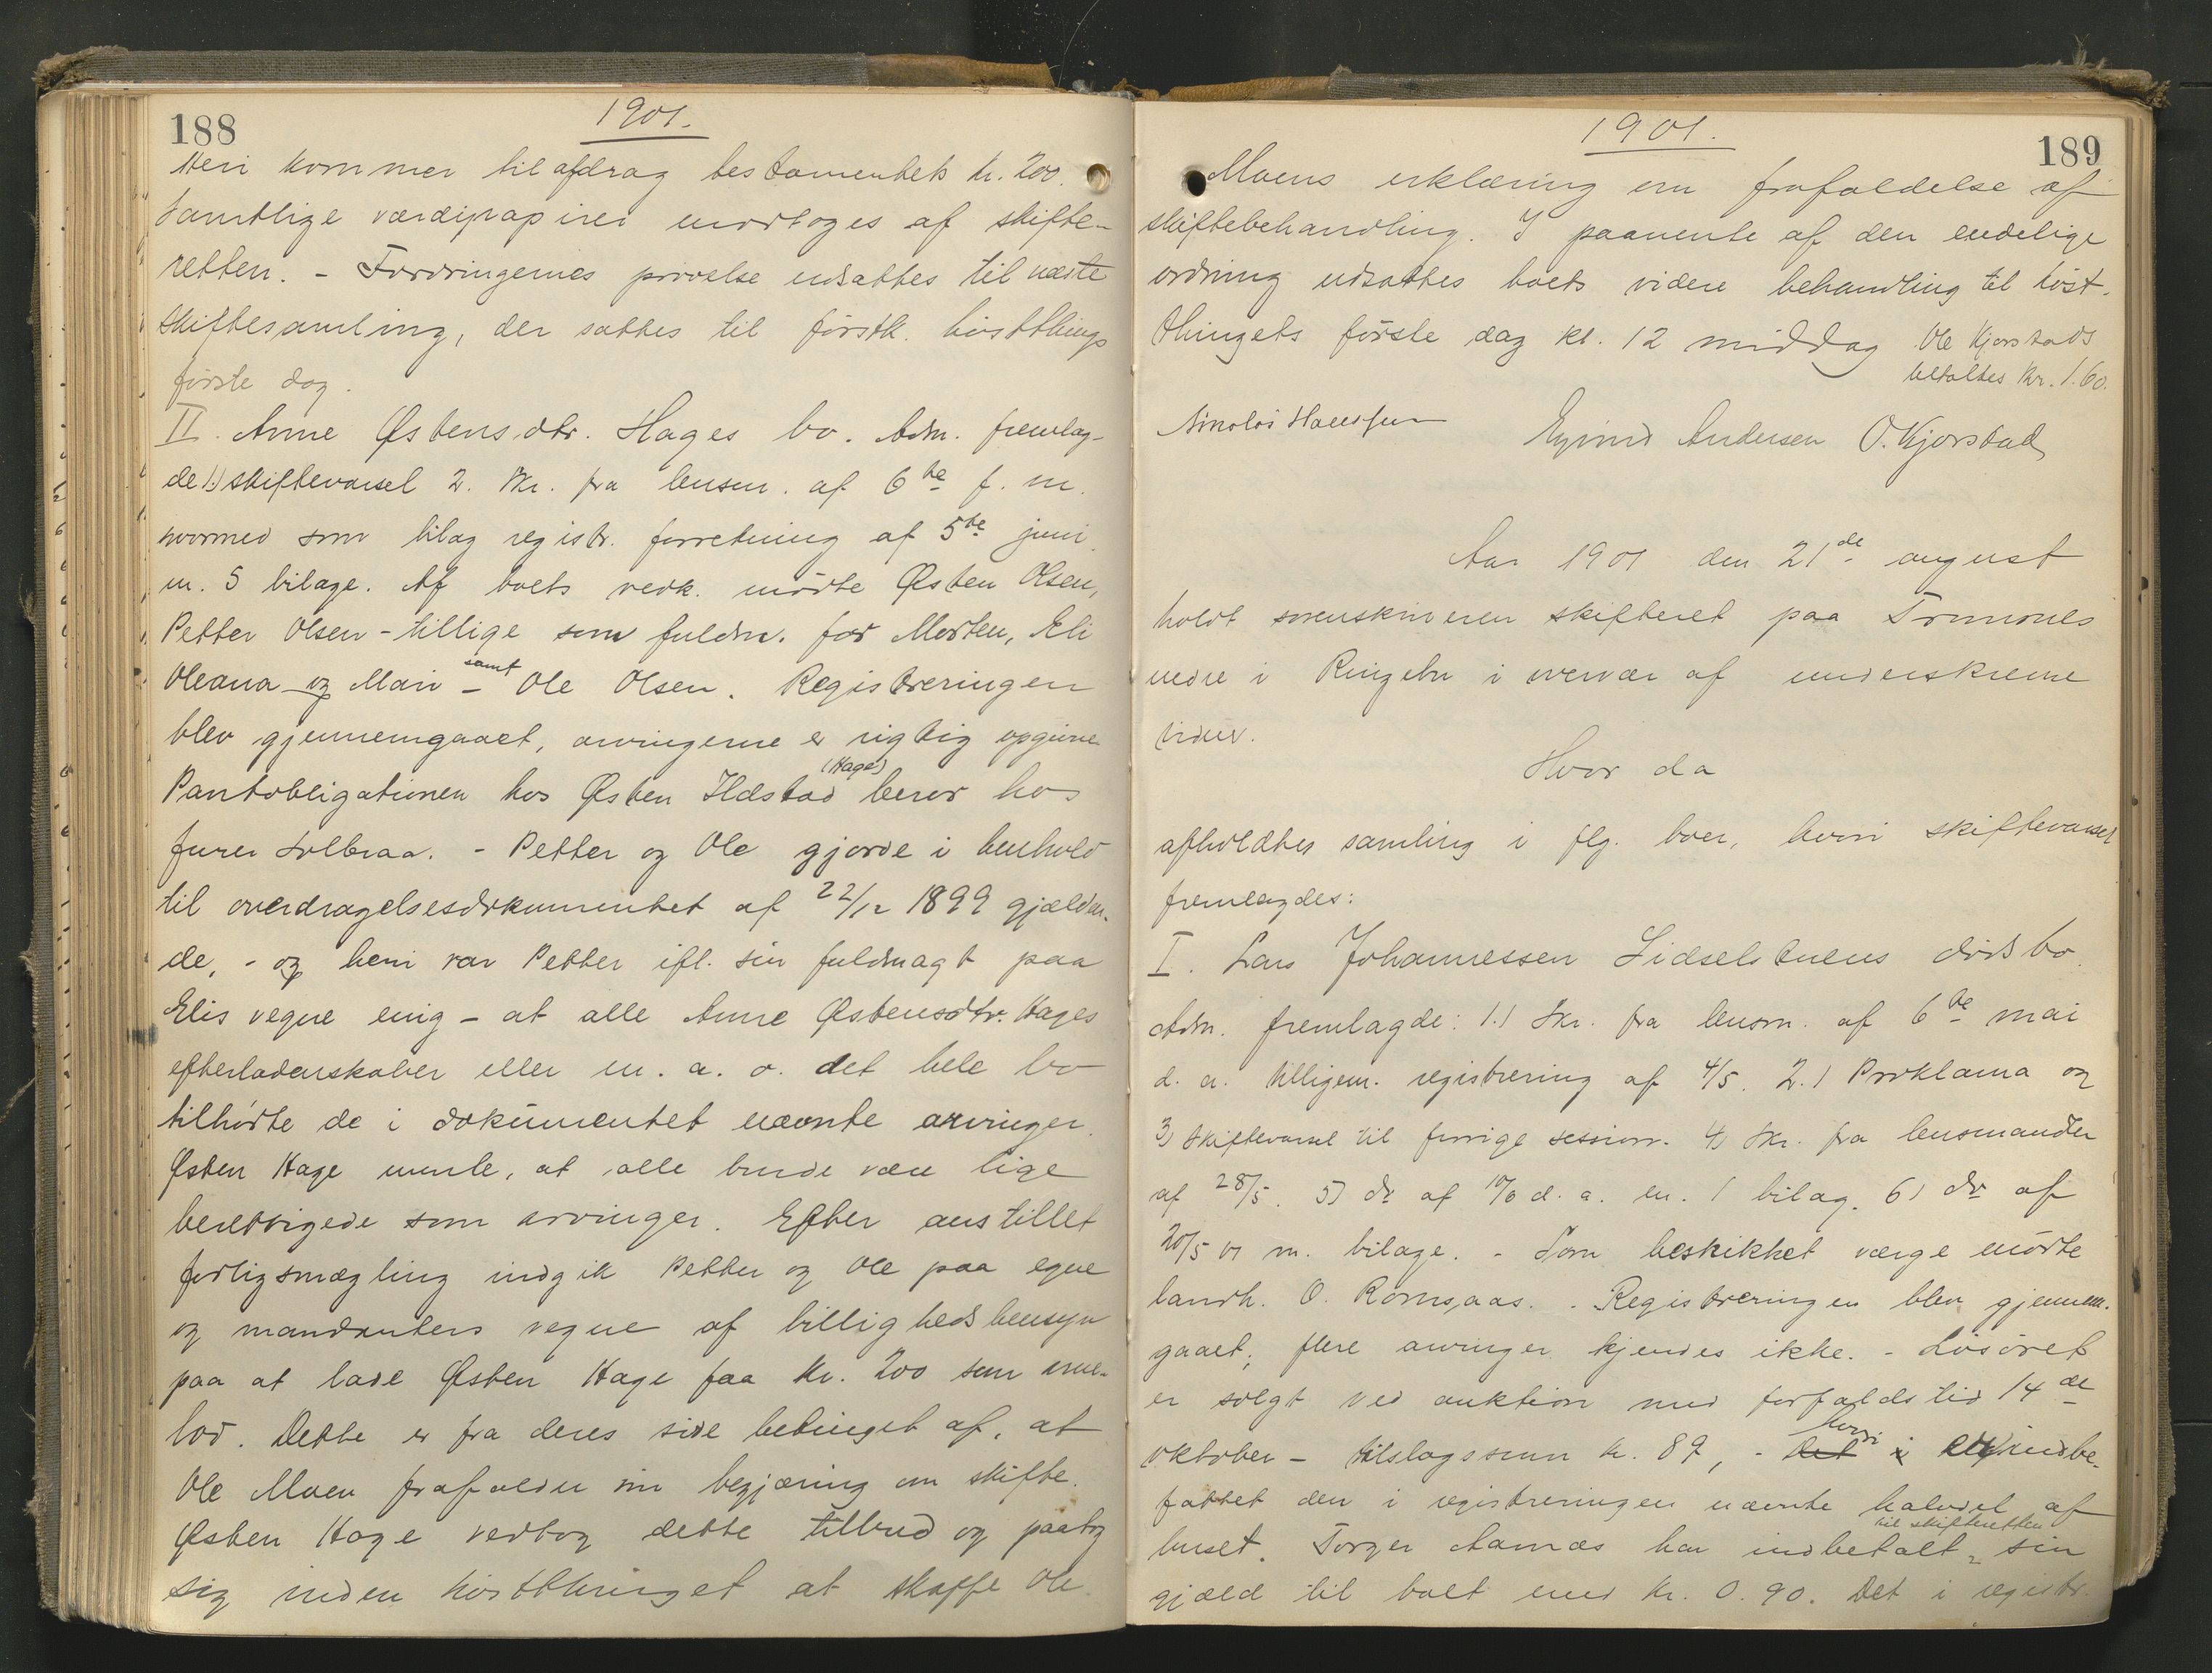 188
1901.
Heri kommer til afdrag testamentets kr. 200.
Samtlige værdipapirer modtoges af skifte-
retten. - Fordringernes prøvelse udsattes til næste
skiftesamling, der sattes til førstk. høstthings
første dag.
II. Anne Østensdtr. Hages bo. Adm. fremlag-
de 1) skiftevarsel 2. Skr. fra lensm. af 6te f. m.
hvormed som bilag registr. forretning af 5te juni
m. 5 bilage. Af boets vedk. mødte Østen Olsen,
Petter Olsen - tillige som fuldm. for Morten, Eli
Oleana og Mari - samt Ole Olsen. Registreringen
blev gjennemgaaet, arvingerne er rigtig opgivne
Pantobligationen hos Østen Ildstad (Hage) beror hos
furer Solbraa. - Petter og Ole gjorde i henhold
til overdragelsesdokumentet af 22/12 1899 gjælden-
de, - og heri var Petter ifl. sin fuldmagt paa
Elis vegne enig - at alle Anne Østensdtr. Hages
efterladenskaber eller m. a. o. det hele bo
tilhørte de i dokumentet nævnte arvinger.
Østen Hage mente, at alle burde være lige
berettigede som arvinger. Efter anstillet
forligsmægling indgik Petter og Ole paa egne
og mandanters vegne af billighedshensyn
paa at lade Østen Hage faa kr. 200 som arve-
lod. Dette er fra deres side betinget af, at
Ole Moen frafalder sin begjæring om skifte.
Østen Hage vedtog dette tilbud og paatog
sig inden høstthinget at skaffe Ole
1901.
189
Moens erklæring om frafaldelse af
skiftebehandling. I paavente af den endelige
ordning udsattes boets videre behandling til høst-
thingets første dag kl. 12 middag Ole Kjorstads
betaltes kr. 1.60.
Eyvind Andersen O. Kjorstad
Aar 1901 den 21de august
holdt sorenskriveren skifteret paa Tromsnes
nedre i Ringebu i overvær af underskrevne
vidner.
Hvor da
afholdtes samling i flg. boer, hvori skiftevarsel
fremlagdes:
I. Lars Johannessen Lidselstuens dødsbo.
Adm. fremlagde: 1.) Skr. fra lensm. af 6te mai
d. a. tilligem. registrering af 4/5. 2.) Proklama og
3) Skiftevarsel til forrige session. 4) Skr. fra lensmanden
af 28/5. 5) do af 10/6 d. a. m. 1 bilag. 6) do af
20/5 01 m. bilage. - Som beskikket værge mødte
landh. O. Romsaas. - Registreringen blev gjennem-
gaaet; flere arvinger kjendes ikke. - Løsøret
er solgt ved auktion med forfaldstid 14de
oktober - tilslagssum kr. 89, - Det hvori i indbe-
fattet den i registreringen nævnte halvdel af
huset. Torger Aamæs har indbetalt til skifteretten sin
gjæld til boet med kr. 0.90. Det i registr.